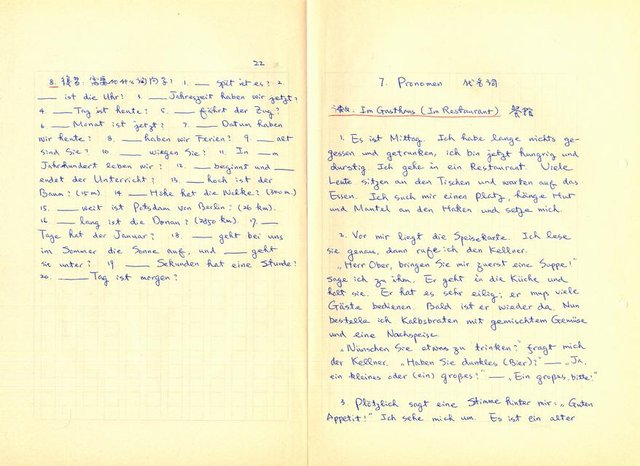 22
8. 练习: 需要什么词问句? 1. ___ spät ist es? 2.
___ ist die Uhr? 3. ___ Jahreszeit haben wir jetzt?
4. ___ Tag ist heute? 5. ___ fährt der Zug?
6. ___ Monat ist jetzt? 7. ___ Datum haben
wir heute? 8. ___ haben wir Ferien? 9. ___ alt
sind Sie? 10. ___ wiegen Sie? 11. In ___
Jahrhundert leben wir? 12. ___ beginnt und ___
endet der Unterricht? 13. ___ hoch ist der
Baum? (15 m). 14. ___ Höhe hat die Wolke? (800 m.)
15. ___ weit ist Potsdam von Berlin? (26 km).
16. ___ lang ist die Donau? (2850 km). 17. ___
Tage hat der Januar? 18. ___ geht bei uns
im Sommer die Sonne auf, und ___ geht
sie unter? 19. ___ Sekunden hat eine Stunde?
20. ___ Tag ist morgen?
7. Pronomen 代名词
课文: Im Gasthaus (Im Restaurant) 餐馆
1. Es ist Mittag. Ich habe lange nichts ge-
gessen und getrunken, ich bin jetzt hungrig und
durstig. Ich gehe in ein Restaurant. Viele
Leute sitzen an den Tischen und warten auf das
Essen. Ich such mir einen Platz, hänge Hut
und Mantel an den Haken und setze mich.
2. Vor mir liegt die Speisekarte. Ich lese
sie genau, dann rufe ich den Kellner.
„Herr Ober, bringen Sie mir zuerst eine Suppe!"
sage ich zu ihm. Er geht in die Küche und
holt sie. Er hat es sehr eilig; er muß viele
Gäste bedienen. Bald ist er wieder da. Nun
bestelle ich Kalbsbraten mit gemischtem Gemüse
und eine Nachspeise.
„Wünschen Sie etwas zu trinken?" fragt mich
der Kellner. „Haben Sie dunkles (Bier)?" — „Ja,
ein kleines oder (ein) großes?" — „Ein großes, bitte!"
3. Plötzlich sagt eine Stimme hinter mir: „Guten
Appetit!" Ich sehe mich um. Es ist ein alter